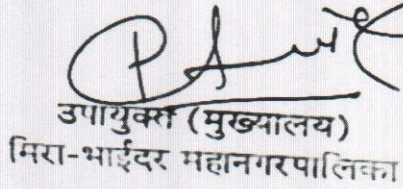 उपायुक्त (मुख्यालय)
मिरा-भाईदर महानगरपालिका